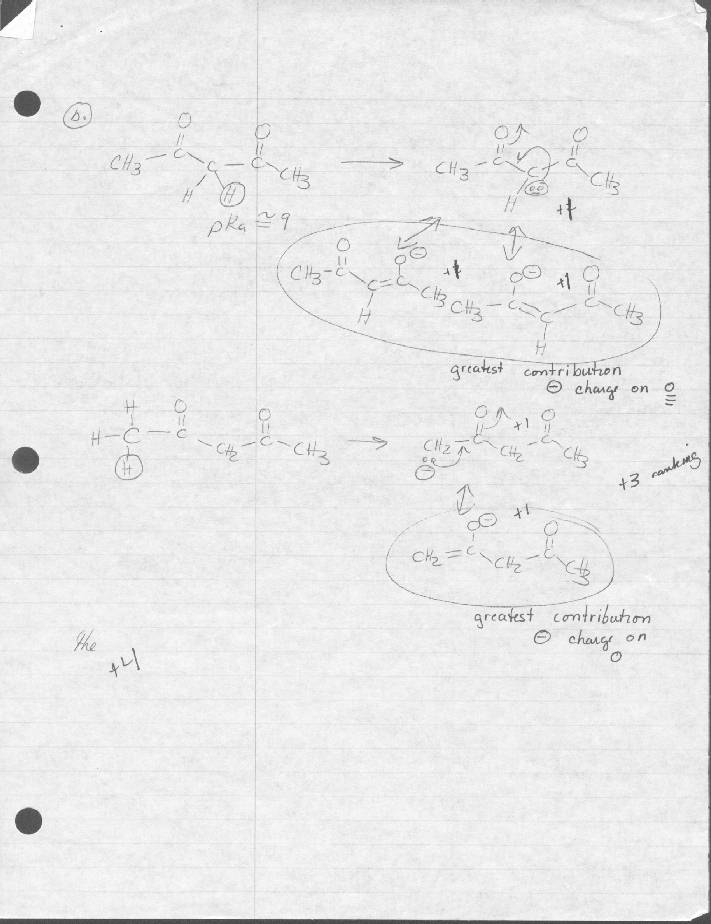 b.
O O O O
CH3 C C C CH3 CH3 C C C CH3
H H H
pKa ≅ 9 +1
O O⊖ +1 O⊖ +1 O
CH3-C C=C CH3 CH3 C=C C CH3
H H
greatest contribution
⊖ charge on O
H O O O +1 O
H-C C CH2 C CH3 CH2 C CH2 C CH3
H ⊖ +3 ranking
O⊖ +1 O
CH2=C CH2 C CH3
greatest contribution
⊖ charge on
O
the
+4